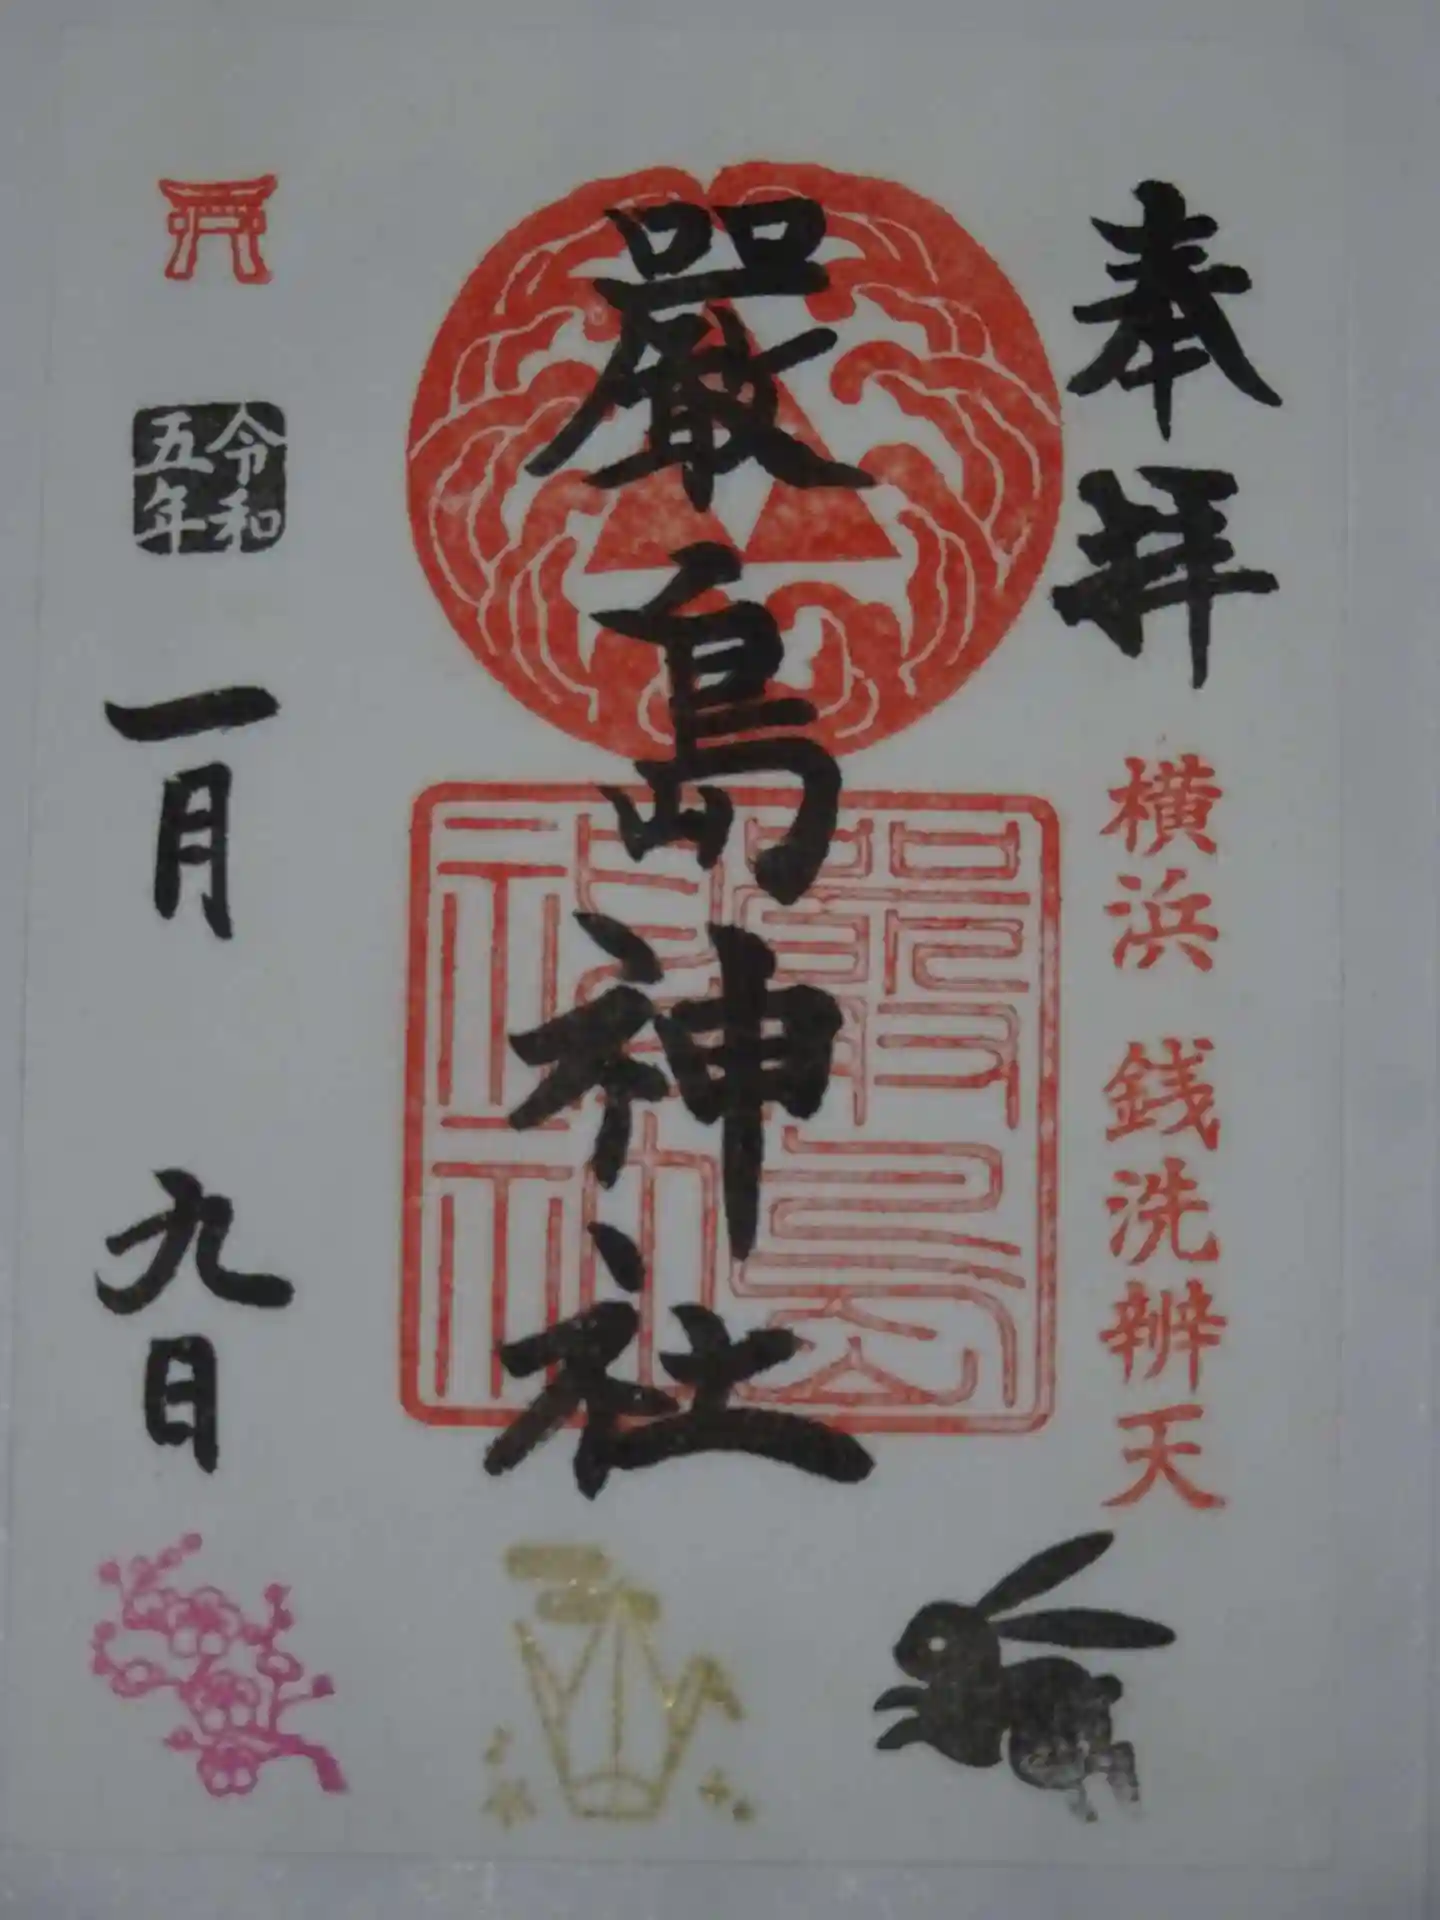 奉拝
横浜 銭洗辨天
嚴島神社
嚴島
神社
令和
五年
一月 九日